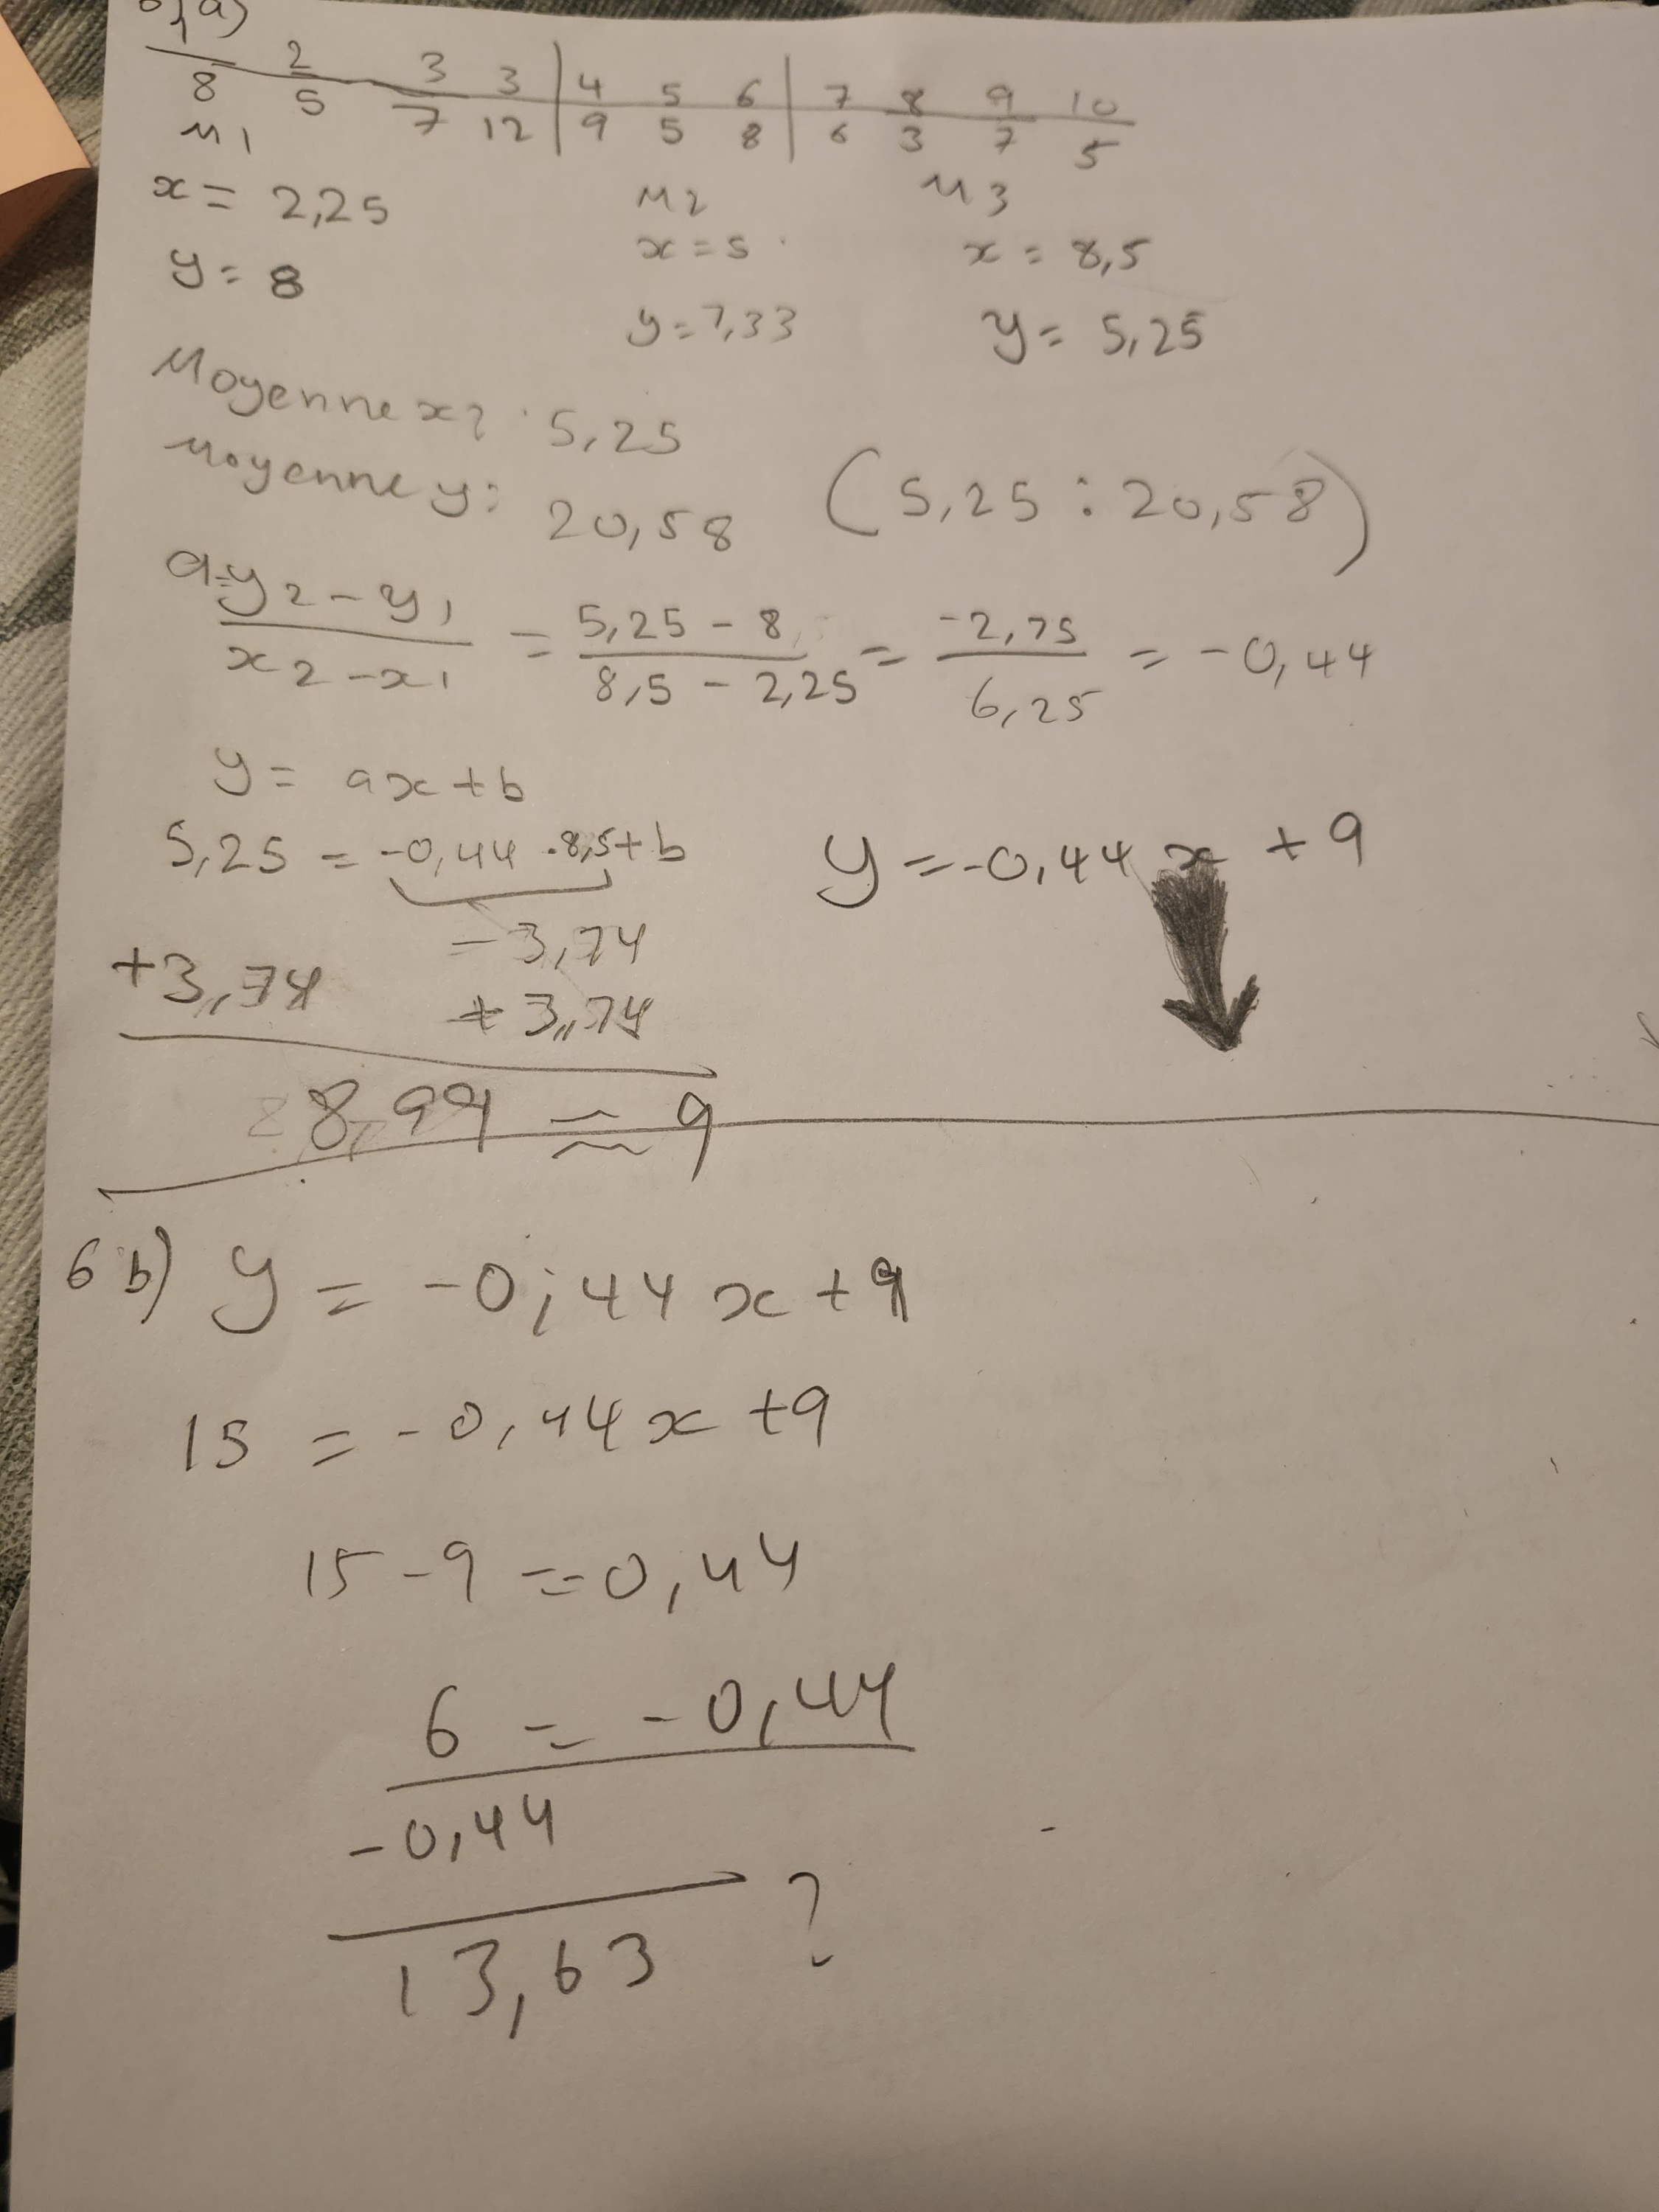 a)
2 3 3 | 4 5 6 | 7 8 9 10
8 5 7 12 | 9 5 8 | 6 3 7 5
M1 M2 M3
x = 2,25 x = 5 x = 8,5
y = 8 y = 7,33 y = 5,25
Moyenne x: 5,25
Moyenne y: 20,58 (5,25 : 20,58)
a=y2-y1/x2-x1 = 5,25-8/8,5-2,25 = -2,75/6,25 = -0,44
y = ax+b
5,25 = -0,44 · 8,5 + b y = -0,44x + 9
-3,74
+3,74 +3,74
8,99 ≈ 9
6 b) y = -0,44x + 9
15 = -0,44x + 9
15 - 9 = -0,44
6 = -0,44
-0,44
13,63 ?